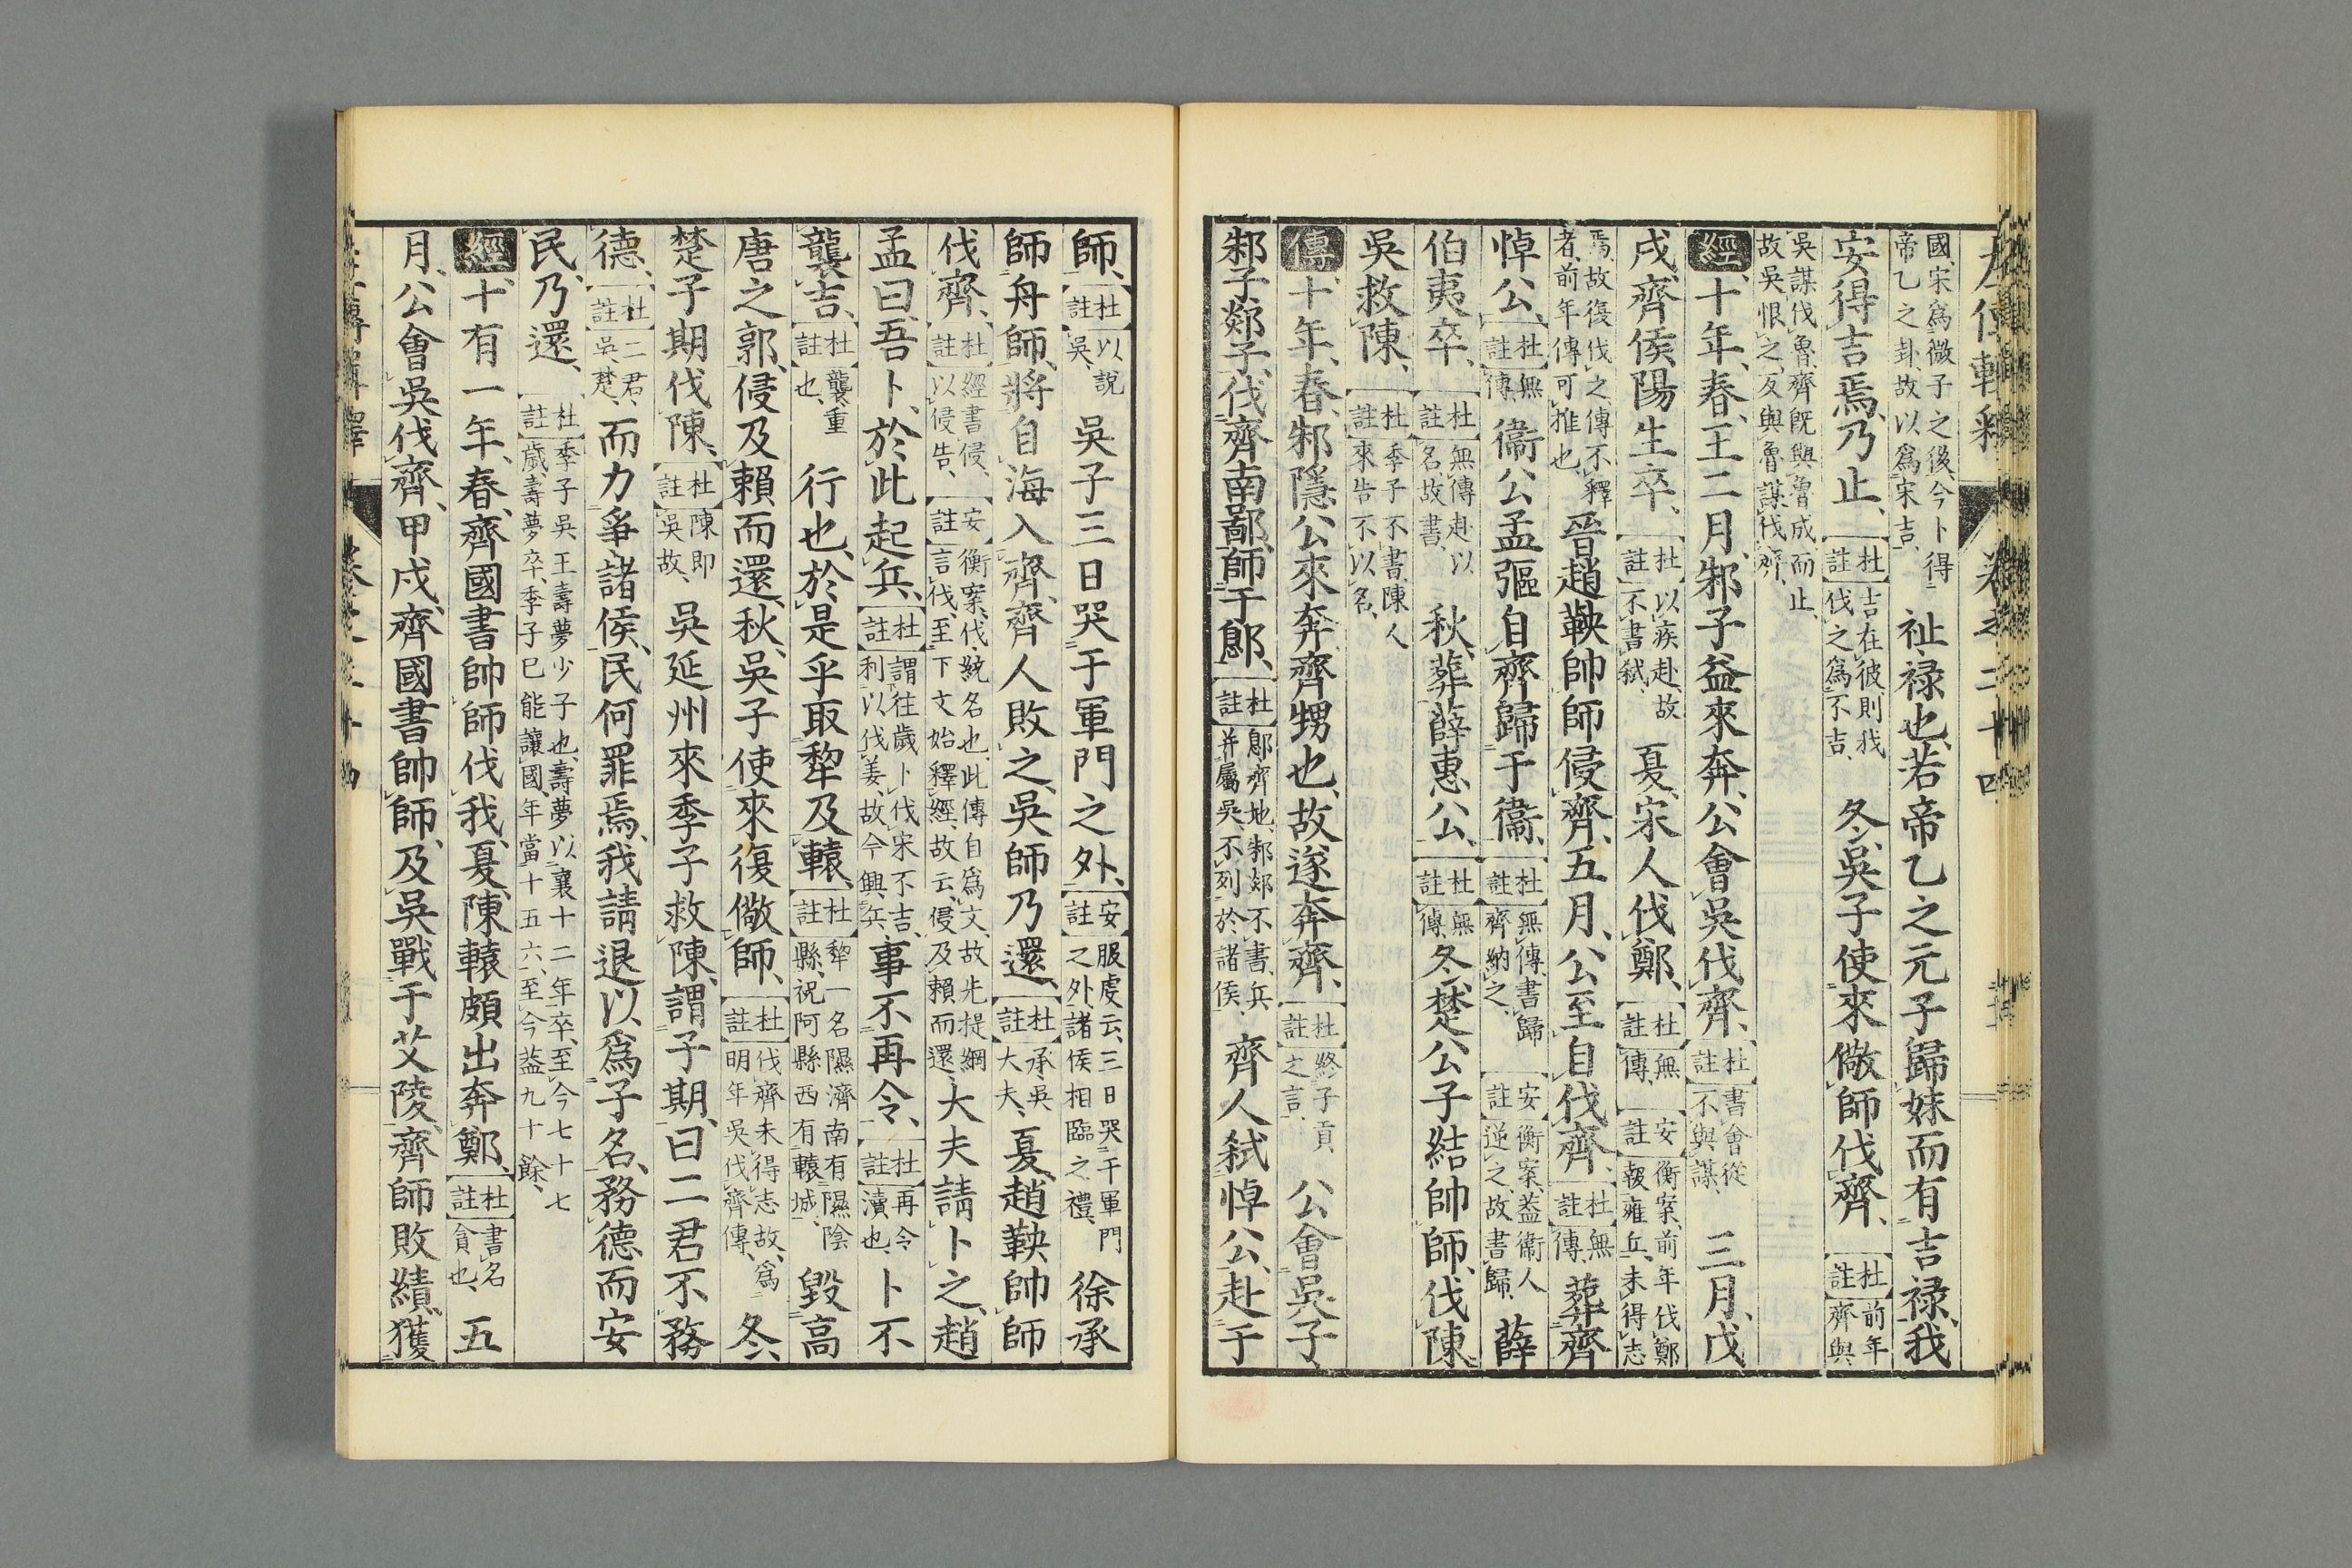 左傳輯釋 卷之二十四
國、宋爲微子之後、今卜得帝乙之卦、故以爲宋吉、祉、祿也、若帝乙之元子歸妹而有吉祿、我
安得吉焉、乃止、杜註吉在彼、則我伐之爲不吉、冬、吳子使來儆師伐齊、杜註前年齊與
吳謀伐魯、齊既與魯成而止、故吳恨之、反與魯謀伐齊、
經、十年、春、王二月、邾子益來奔、公會吳伐齊、杜註書會從不與謀、三月、戊
戌、齊侯陽生卒、杜註以疾赴、故不書弒、夏、宋人伐鄭、杜註無傳、安註衡案、前年伐鄭報雍丘、未得志
焉、故復伐之、傳不釋者、前年傳可推也、晉趙鞅帥師侵齊、五月、公至自伐齊、杜註無傳、葬齊
悼公、杜註無傳、衞公孟彄自齊歸于衞、杜註無傳、書歸齊納之、安註衡案、蓋衞人逆之、故書歸、薛
伯夷卒、杜註無傳、赴以名、故書、秋、葬薛惠公、杜註無傳、冬、楚公子結帥師、伐陳、
吳救陳、杜註季子不書、陳人來告不以名、
傳、十年、春、邾隱公來奔、齊甥也、故遂奔齊、杜註終子貢之言、公會吳子、
邾子、郯子、伐齊南鄙、師于鄎、杜註鄎齊地、邾郯不書、兵并屬吳、不列於諸侯、齊人弒悼公、赴于
師、杜註以說吳、吳子三日哭于軍門之外、安註服虔云、三日哭于軍門之外、諸侯相臨之禮、徐承
帥舟師、將自海入齊、齊人敗之、吳師乃還、杜註承、吳大夫、夏、趙鞅帥師
伐齊、杜註經書侵、以侵告、安註衡案、伐、統名也、此傳自爲文、故先提綱言伐、至下文始釋經、故云、侵及賴而還、大夫請卜之、趙
孟曰、吾卜、於此起兵、杜註謂往歲卜伐宋不吉、利以伐姜、故今興兵、事不再令、杜註再令瀆也、卜不
襲吉、杜註襲、重也、行也、於是乎取犂及轅、杜註犂一名隰、濟南有隰陰縣、祝阿縣西有轅城、毀高
唐之郭、侵及賴而還、秋、吳子使來復儆師、杜註伐齊未得志故、爲明年吳伐齊傳、冬、
楚子期伐陳、杜註陳即吳故、吳延州來季子救陳、謂子期、曰、二君不務
德、杜註二君、吳楚、而力爭諸侯、民何罪焉、我請退以爲子名、務德而安
民、乃還、杜註季子吳王壽夢少子也、壽夢以襄十二年卒、至今七十七歲、壽夢卒、季子已能讓國、年當十五六、至今蓋九十餘、
經、十有一年、春、齊國書帥師伐我、夏、陳轅頗出奔鄭、杜註書名貪也、五
月、公會吳伐齊、甲戌、齊國書帥師、及吳戰于艾陵、齊師敗績、獲